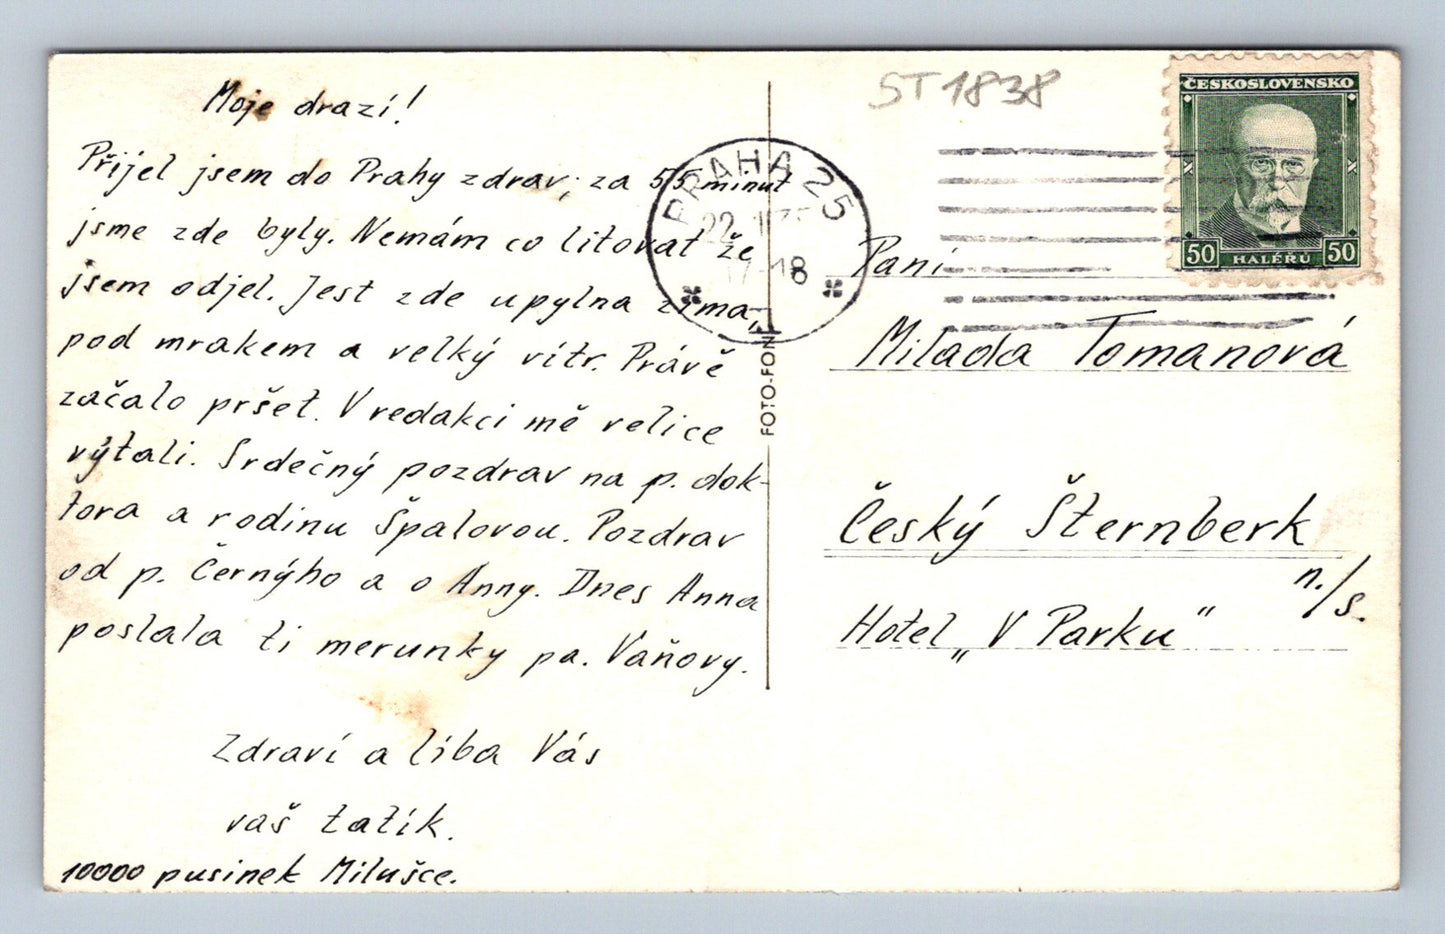 Moje drazí!
Přijel jsem do Prahy zdrav, za 55 minut
jsme zde byly. Nemám co litovat že
jsem odjel. Jest zde upylna zima,
pod mrakem a velký vítr. Právě
začalo pršet. V redakci mě velice
výtali. Srdečný pozdrav na p. dok-
tora a rodinu Špalovou. Pozdrav
od p. Černýho a o Anny. Dnes Anna
poslala ti merunky pa. Vaňovy.
Zdraví a líba Vás
vaš tatík.
10000 pusinek Milušce.
ST 1838
PRAHA 25
22
17-18
FOTO-FON
ČESKOSLOVENSKO
50 HALÉŘŮ 50
Paní
Milada Tomanová
Český Šternberk
n./s.
Hotel „V Parku"